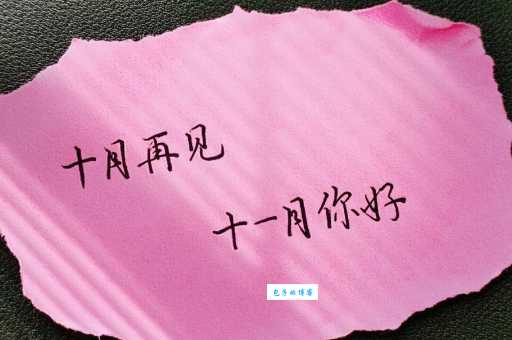 十月再见
十一月你好
包子的博客